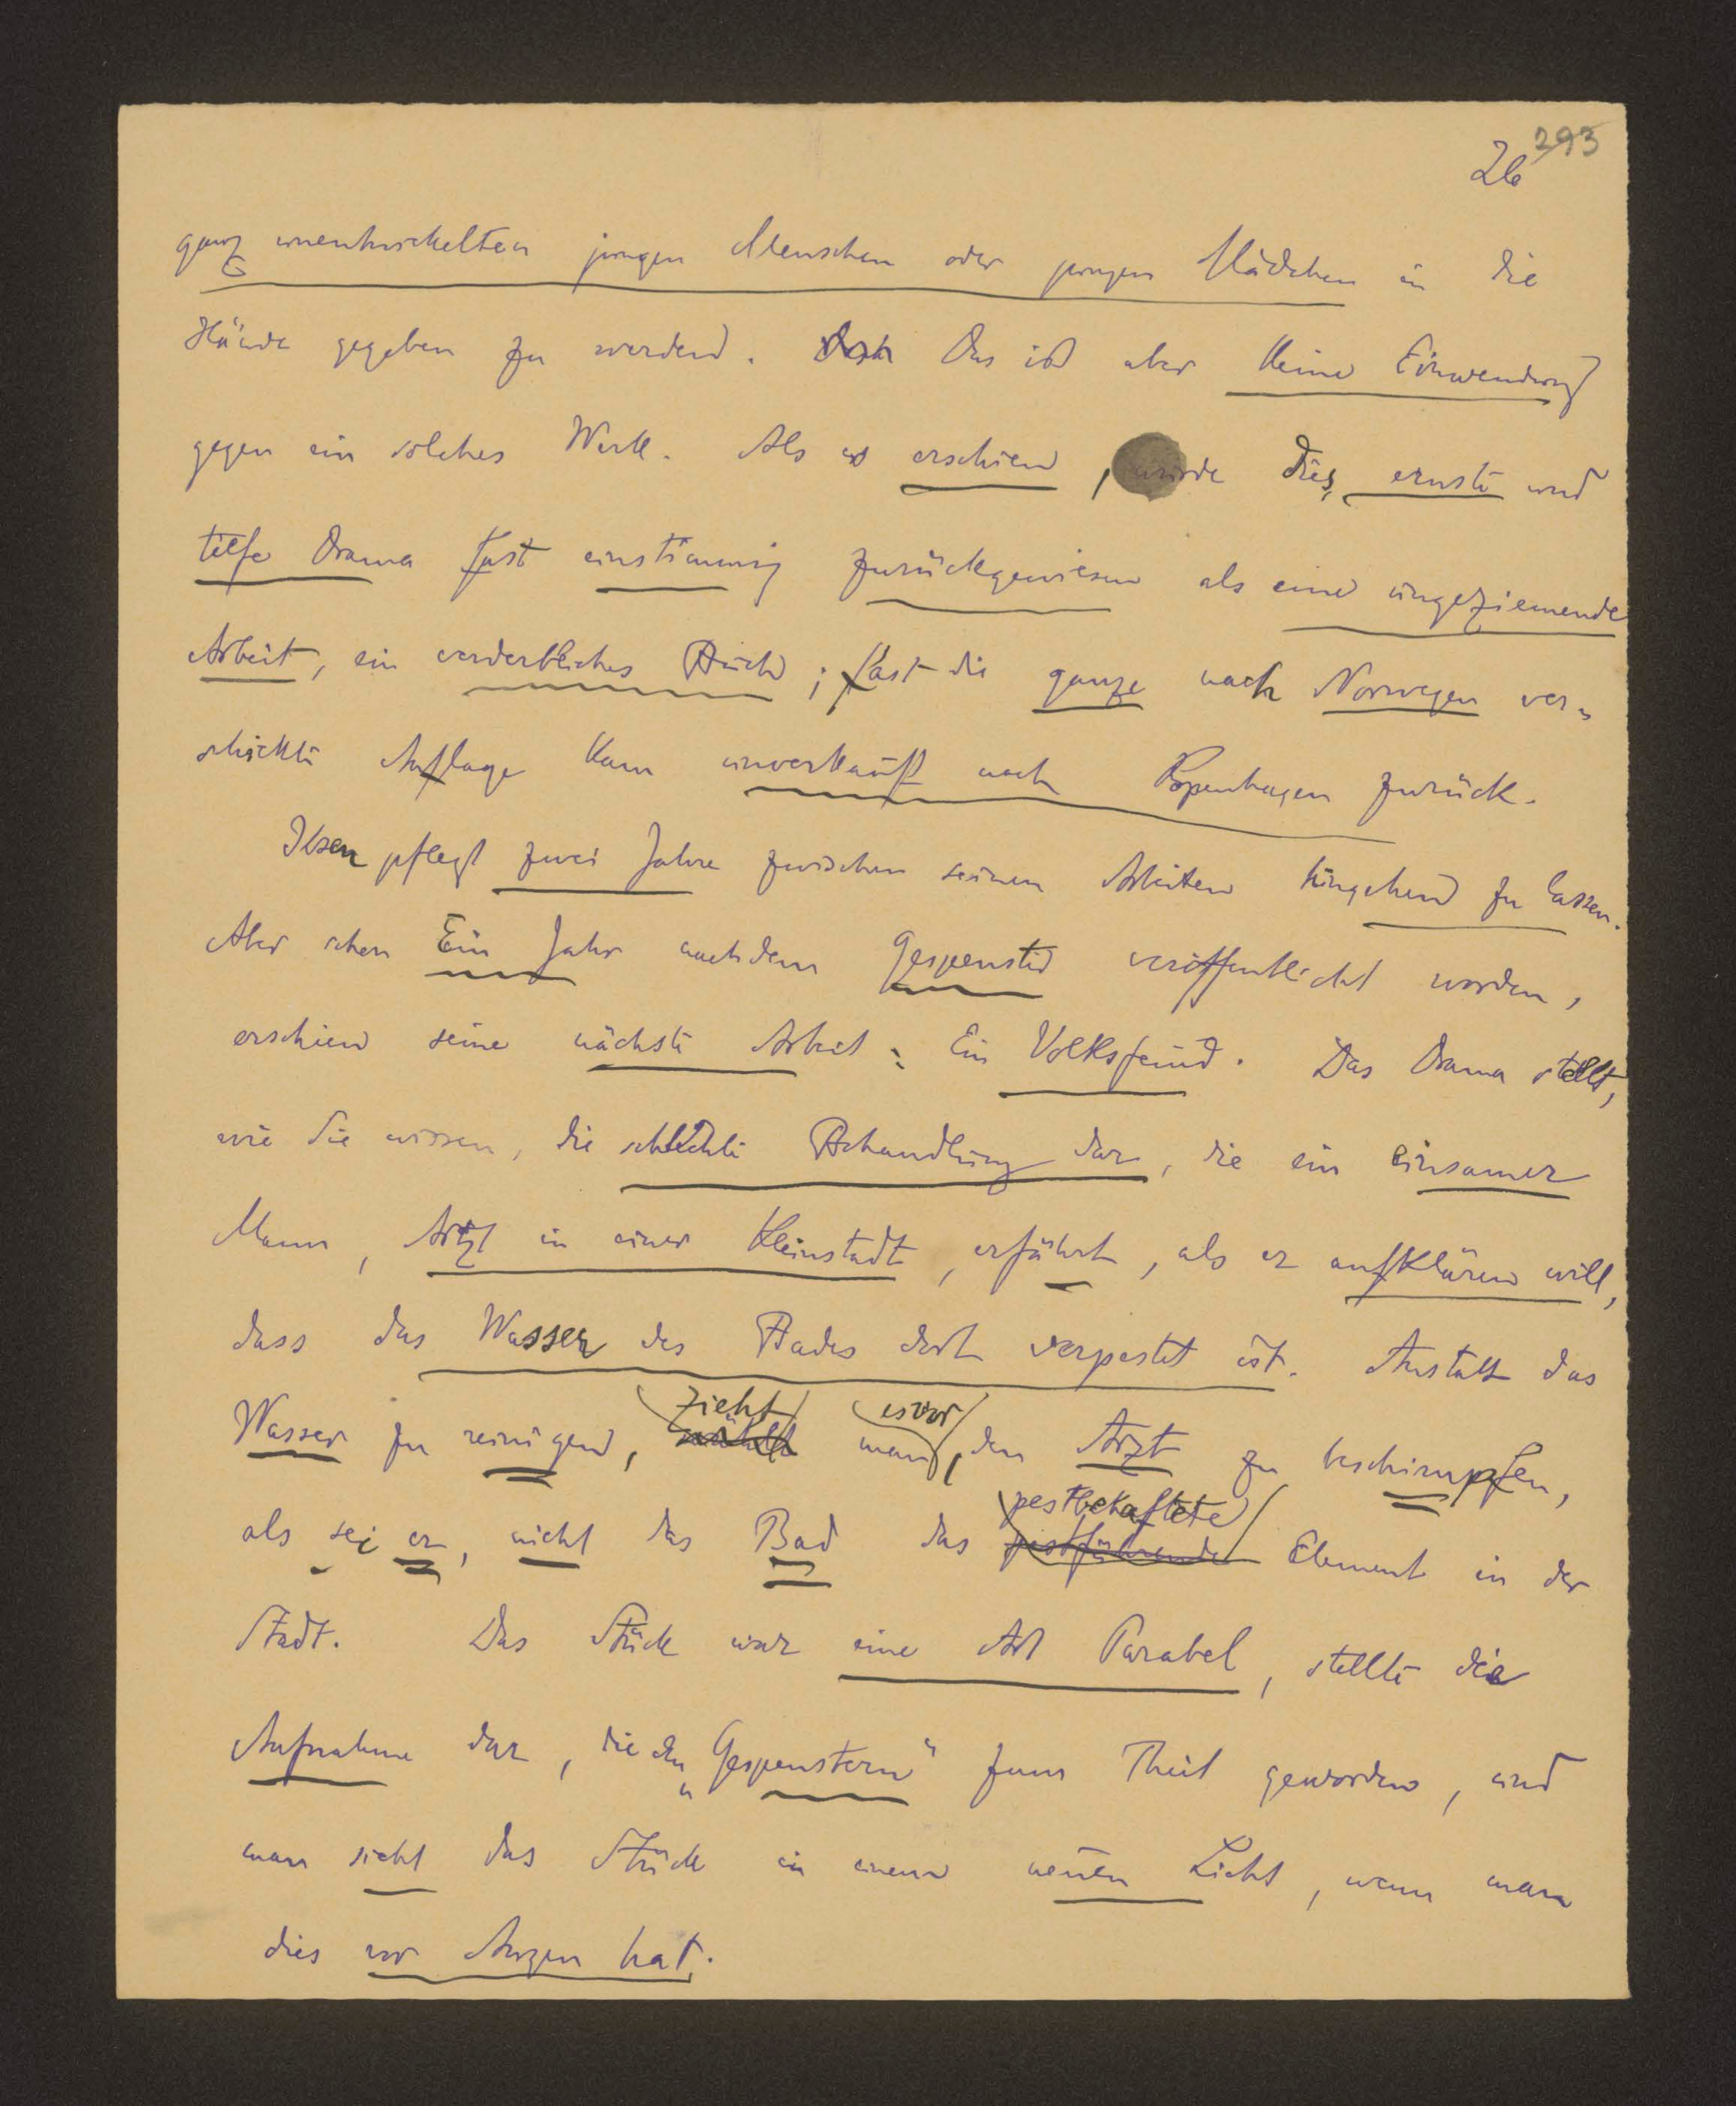 293
26
ganz unentwickelten jungen Menschen oder jungen Mädchen in die
Hände gegeben zu werden. Das ist aber keine Einwendung
gegen ein solches Werk. Als es erschien, wurde dies ernste und
tiefe Drama fast einstimmig zurückgewiesen als eine ungeziemende
Arbeit, ein verderbliches Buch; fast die ganze nach Norwegen ver-
schickte Auflage kam unverkauft nach Kopenhagen zurück.
Ibsen pflegt zwei Jahre zwischen seinen Arbeiten hingehen zu lassen.
Aber schon Ein Jahr nachdem Gespenster veröffentlicht worden,
erschien seine nächste Arbeit: Ein Volksfeind. Das Drama stellt,
wie Sie wissen, die schlechte Behandlung dar, die ein einsamer
Mann, Arzt in einer Kleinstadt, erfährt, als er aufklären will,
dass das Wasser des Bades dort verpestet ist. Anstatt das
zieht es vor
Wasser zu reinigen, man, den Arzt zu beschimpfen,
pestbehaftete
als sei er, nicht das Bad das pestführende Element in der
Stadt. Das Stück war eine Art Parabel, stellte die
Aufnahme dar, die den „Gespenstern" zum Theil geworden, und
man sieht das Stück in einem neuen Licht, wenn man
dies vor Augen hat.